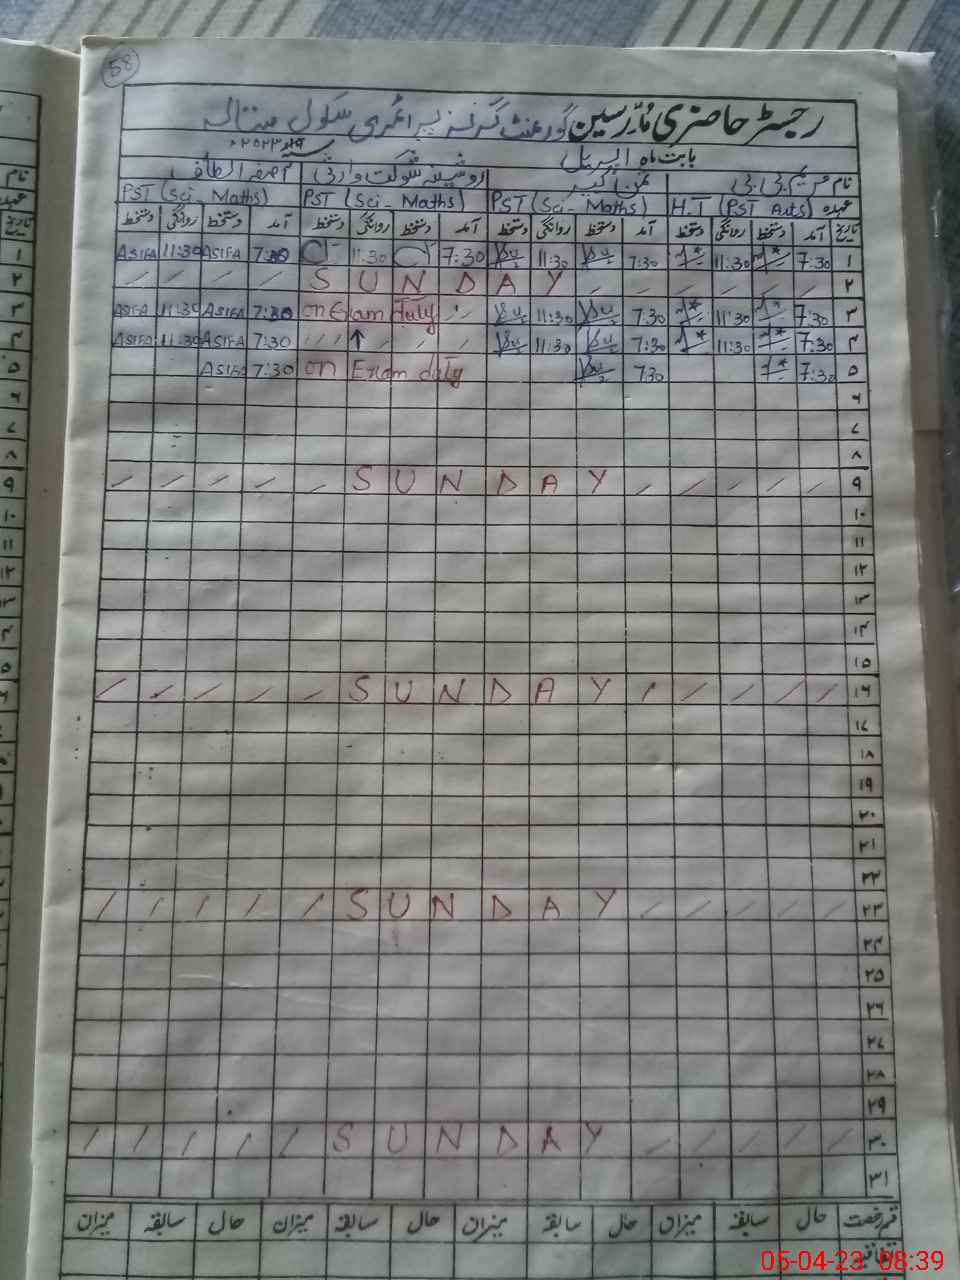 58
رجسٹر حاضری مدرسین گورنمنٹ گرلز پرائمری سکول
بابت ماہ اپریل ۲۰۲۳ء
نام
عہدہ H.T (PST Arts) PST (Sci - Maths) PST (Sci - Maths) PST (Sci - Maths)
تاریخ آمد دستخط روانگی دستخط آمد دستخط روانگی دستخط آمد دستخط روانگی دستخط آمد دستخط روانگی دستخط
۱ 7:30 11:30 7:30 11:30 7:30 11:30 7:30 ASIFA 11:30 ASIFA
۲ SUNDAY
۳ 7:30 11:30 7:30 11:30 on Exam duty 7:30 ASIFA 11:30 ASIFA
۴ 7:30 11:30 7:30 11:30 ↑ 7:30 ASIFA 11:30 ASIFA
۵ 7:30 7:30 on Exam duty 7:30 ASIFA
۶
۷
۸
۹ SUNDAY
۱۰
۱۱
۱۲
۱۳
۱۴
۱۵
۱۶ SUNDAY
۱۷
۱۸
۱۹
۲۰
۲۱
۲۲
۲۳ SUNDAY
۲۴
۲۵
۲۶
۲۷
۲۸
۲۹
۳۰ SUNDAY
۳۱
قسم رخصت حال سابقہ میزان حال سابقہ میزان حال سابقہ میزان حال سابقہ میزان
اتفاقیہ
05-04-23 08:39